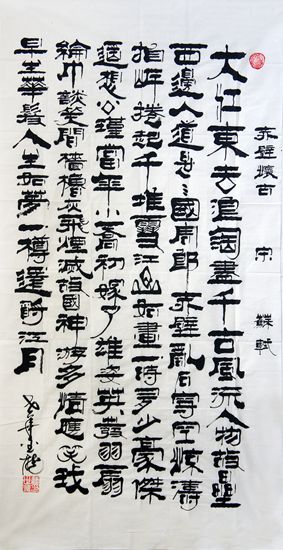 赤壁懷古 宋 蘇軾
大江東去浪淘盡千古風流人物故壘
西邊人道是三國周郎赤壁亂石穿空驚濤
拍岸捲起千堆雪江山如畫一時多少豪傑
遙想公瑾當年小喬初嫁了雄姿英發羽扇
綸巾談笑間檣櫓灰飛煙滅故國神游多情應笑我
早生華髮人生如夢一樽還酹江月